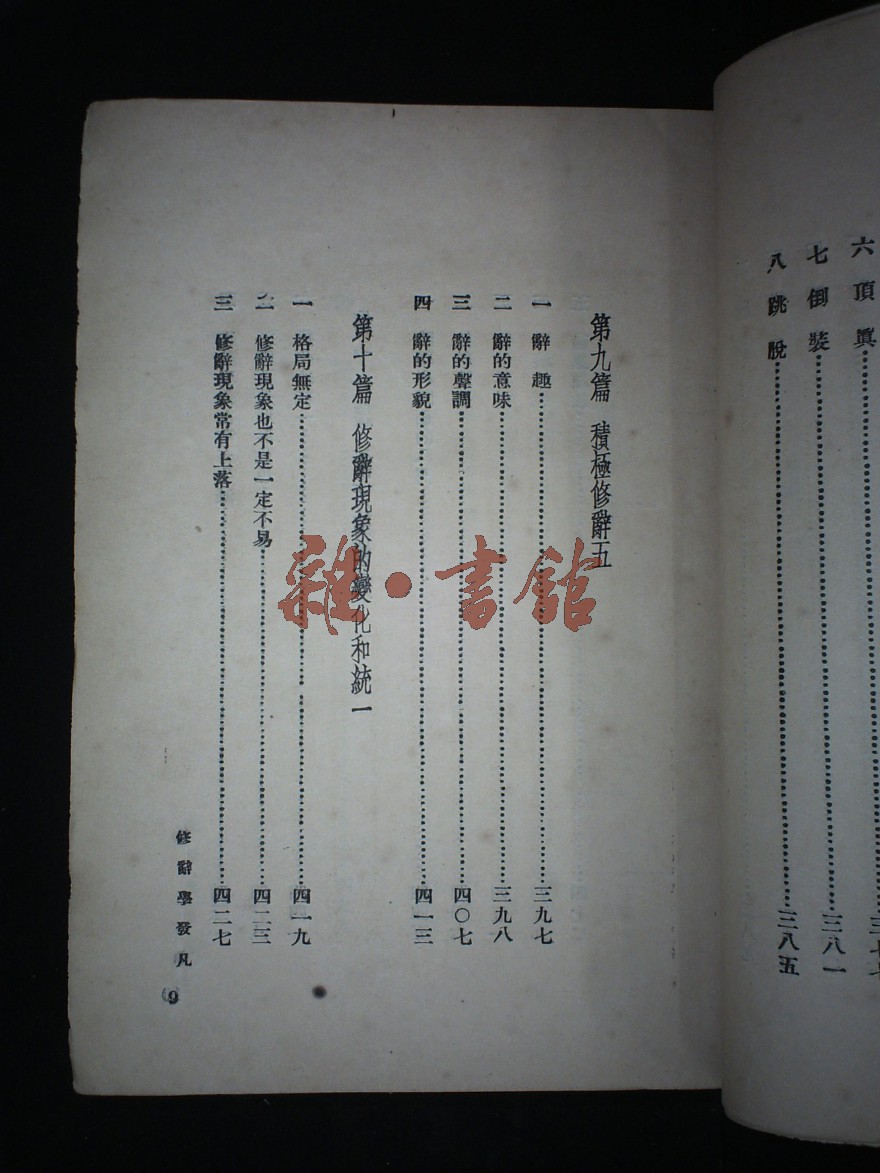 六 頂眞……三七七
七 倒裝……三八一
八 跳脫……三八五
第九篇 積極修辭五
一 辭趣……三九七
二 辭的意味……三九八
三 辭的聲調……四〇七
四 辭的形貌……四一三
第十篇 修辭現象的變化和統一
一 格局無定……四一九
二 修辭現象也不是一定不易……四二三
三 修辭現象常有上落……四二七
修辭學發凡
9
雜·書館